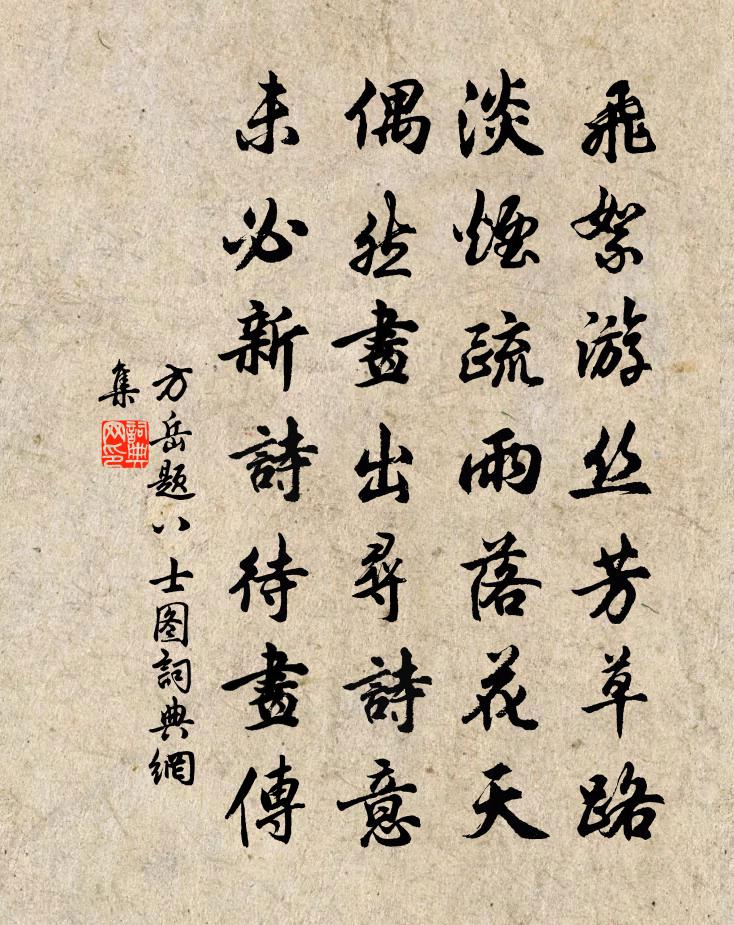 飛絮游丝芳草路
淡煙疏雨落花天
偶然畫出尋詩意
未必新詩待畫傳
方岳題八士图詞典網
集
詞典
网印